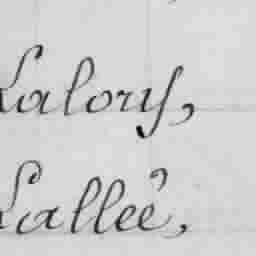 Lalory,
Lalleé,